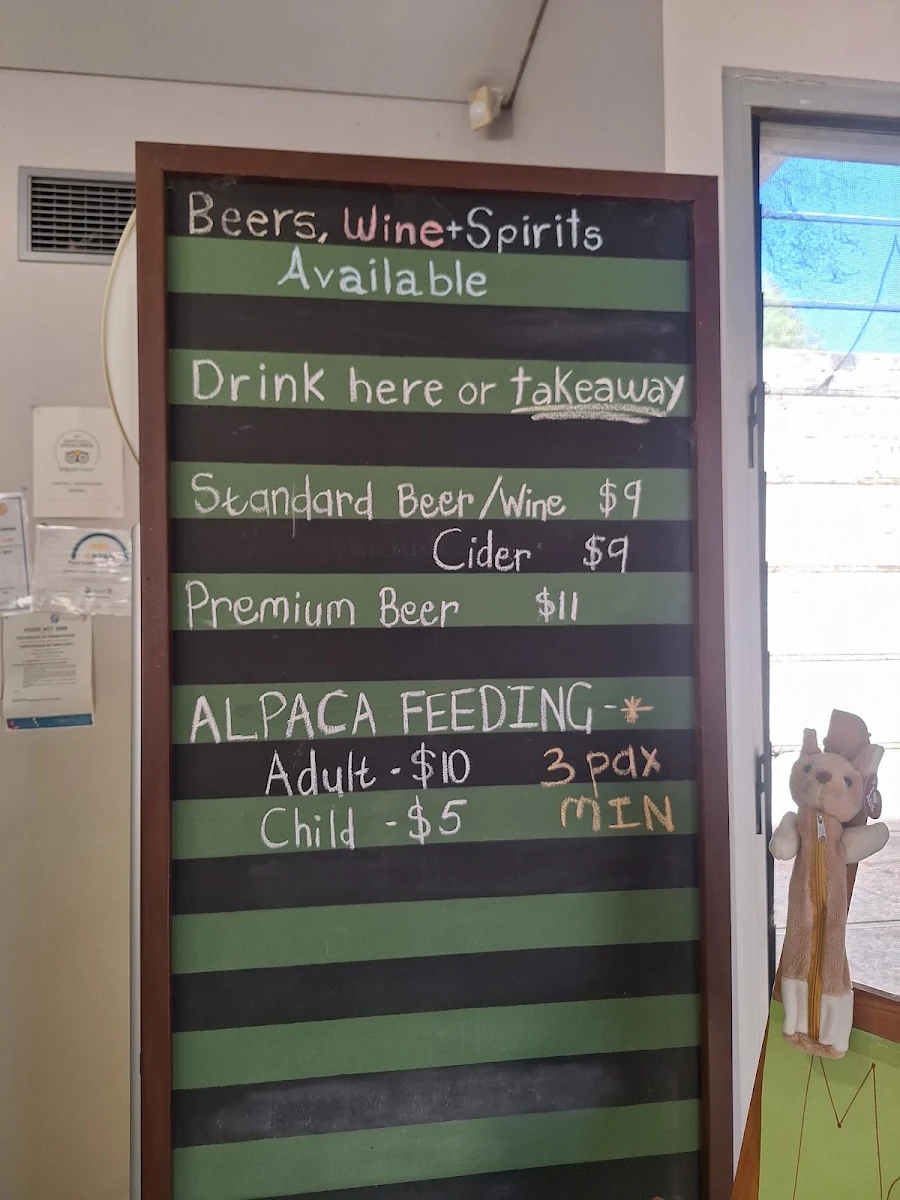 Beers, Wine+Spirits
Available
Drink here or takeaway
Standard Beer/Wine $9
Cider $9
Premium Beer $11
ALPACA FEEDING-*
Adult - $10 3 pax
Child - $5 MIN
FOOD ACT
M